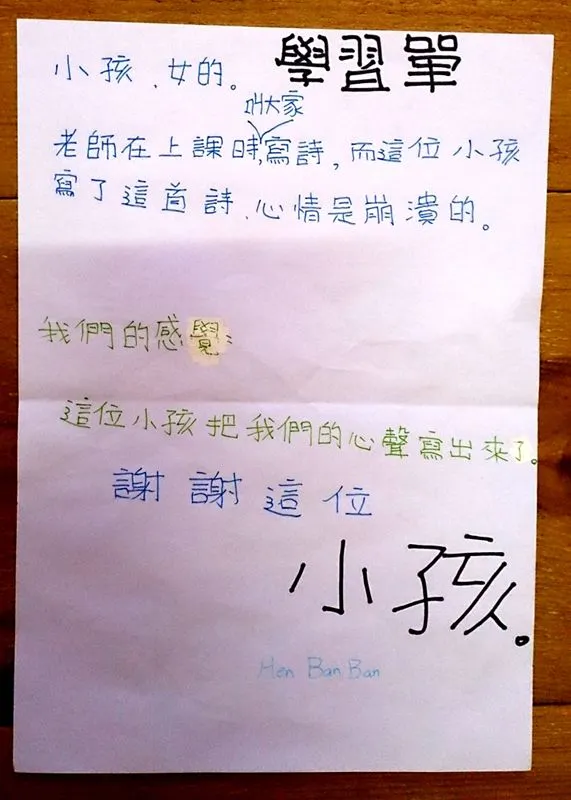 學習單
小孩、女的。
叫大家
老師在上課時,寫詩,而這位小孩
寫了這首詩、心情是崩潰的。
我們的感覺:
這位小孩把我們的心聲寫出來了。
謝謝這位
小孩。
Hen Ban Ban